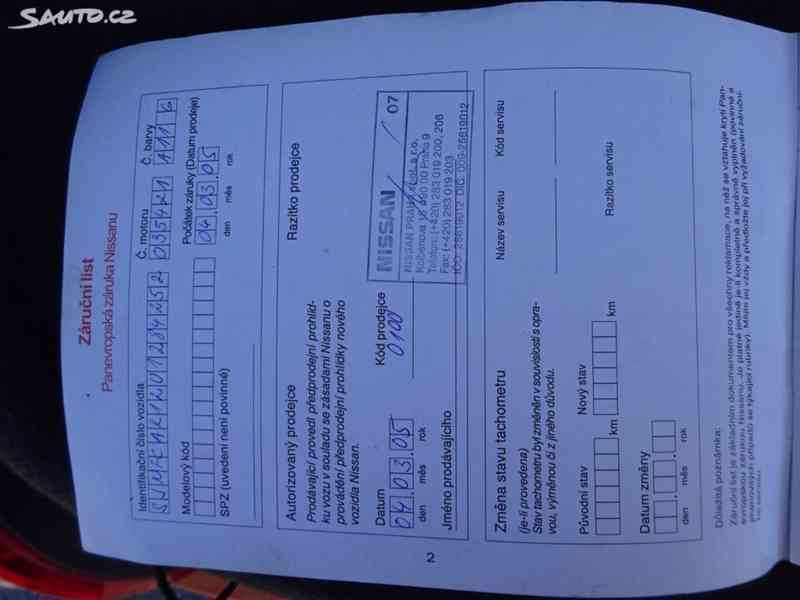 SAUTO.CZ
Záruční list
Panevropská záruka Nissanu
Identifikační číslo vozidla
Č. motoru
Č. barvy
035421
A11 6
Modelový kód
Počátek záruky (Datum prodeje)
04 03 05
den měs rok
SPZ (uvedení není povinné)
Autorizovaný prodejce
Razítko prodejce
Prodávající provedl předprodejní prohlíd-
ku vozu v souladu se zásadami Nissanu o
provádění předprodejní prohlídky nového
vozidla Nissan.
Datum
Kód prodejce
04 03 05
0100
den měs rok
Jméno prodávajícího
NISSAN 07
NISSAN PRAHA s.r.o.
Kolbenova 190 00 Praha 9
Telefon: (+420) 283 019 200, 206
Fax: (+420) 283 019 203
Změna stavu tachometru
(je-li provedena)
Stav tachometru byl změněn v souvislosti s opra-
vou, výměnou či z jiného důvodu.
Název servisu
Kód servisu
Původní stav
km
Nový stav
km
Razítko servisu
Datum změny
den měs rok
Důležitá poznámka:
Záruční list je základním dokumentem pro všechny reklamace, na něž se vztahuje krytí Pan-
evropskou zárukou Nissanu. Je platné jedině je-li kompletně a správně vyplněn (povinné a
2